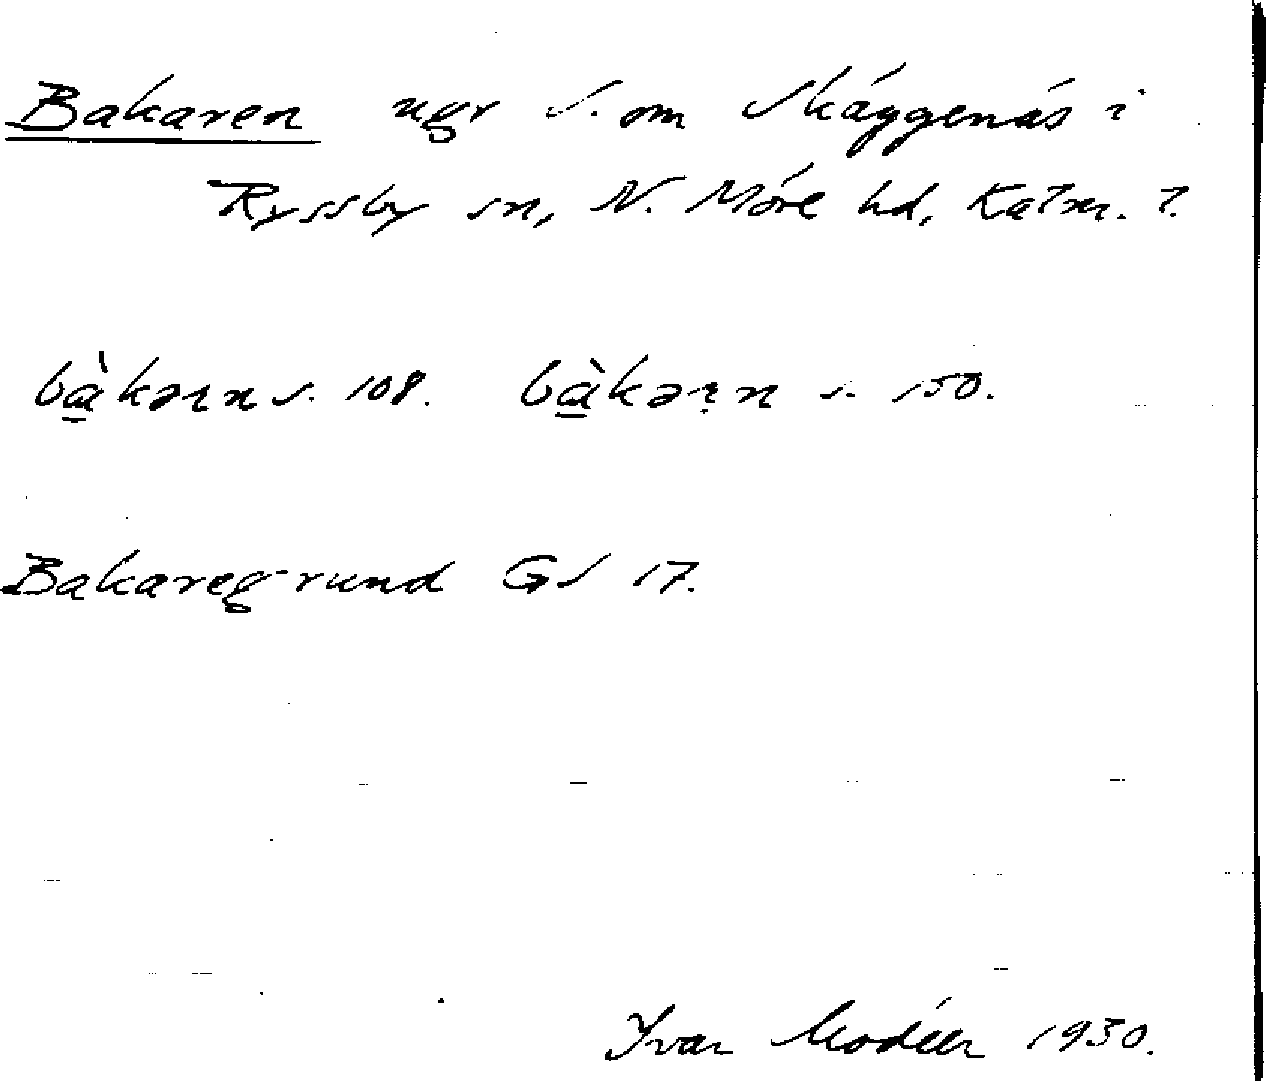 Bakaren ugr S. om Skäggenäs i
Ryssby sn, N. Möre hd, Kalm. l.
bàkərn s. 108. bàkərn s. 150.
Bakaregrund GS 17.
Ivar Modéer 1930.